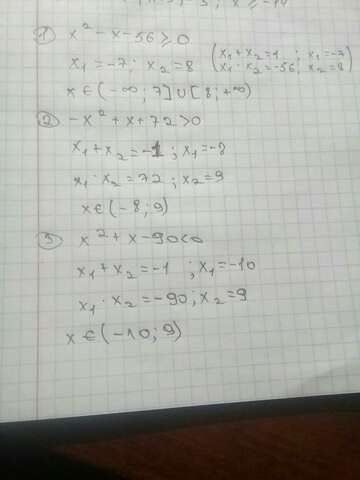 ① x² - x - 56 ≥ 0
x₁ = -7 ; x₂ = 8 (x₁ + x₂ = 1 ; x₁ = -7
x₁ · x₂ = -56, x₂ = 8)
x ∈ (-∞; 7] ∪ [8; +∞)
② -x² + x + 72 > 0
x₁ + x₂ = -1 ; x₁ = -8
x₁ · x₂ = 72 ; x₂ = 9
x ∈ (-8; 9)
3 x² + x - 90 < 0
x₁ + x₂ = -1 ; x₁ = -10
x₁ · x₂ = -90 ; x₂ = 9
x ∈ (-10; 9)